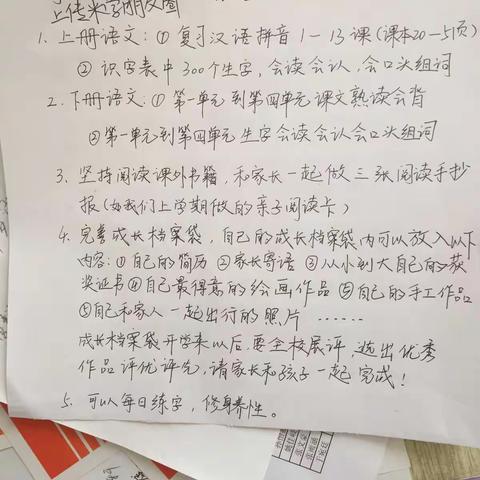 上传米字朋友圈
1. 上册语文:①复习汉语拼音1—13课(课本20—51页)
②识字表中300个生字,会读会认,会口头组词
2. 下册语文:①第一单元到第四单元课文熟读会背
②第一单元到第四单元生字会读会认会口头组词
3. 坚持阅读课外书籍,和家长一起做三张阅读手抄
报(如我们上学期做的亲子阅读卡)
4. 完善成长档案袋,自己的成长档案袋内可以放入以下
内容:①自己的简历 ②家长寄语 ③从小到大自己的获
奖证书④自己最得意的绘画作品 ⑤自己的手工作品
⑤自己和家人一起出行的照片 ……
成长档案袋开学来以后,要全校展评,选出优秀
作品评优评先,请家长和孩子一起完成!
5. 可以每日练字,修身养性。